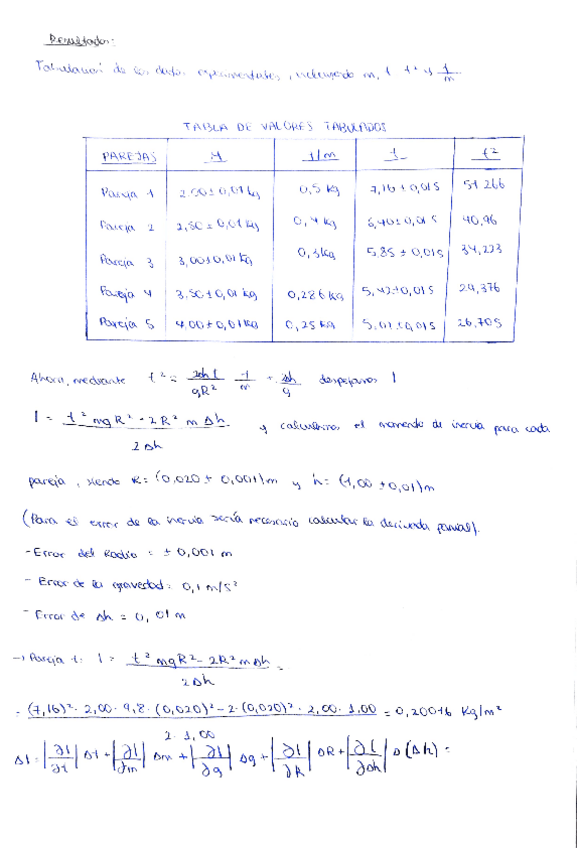 Resultados:
Tabulación de los datos experimentales, incluyendo m, t t² y 1/m
TABLA DE VALORES TABULADOS
PAREJAS M 1/m t t²
Pareja 1 2.00±0,01kg 0,5 kg 7,16±0,01s 51.266
Pareja 2 2,50±0,01kg 0,4 kg 6,40±0,01s 40,96
Pareja 3 3,00±0,01kg 0,3kg 5,85±0,01s 34,223
Pareja 4 3,50±0,01kg 0,286kg 5,42±0,01s 29,376
Pareja 5 4,00±0,01kg 0,25kg 26,705
Ahora, mediante t² = 2Δh I / gR² 1/m + 2Δh / g despejamos I
I = t² mgR² - 2R² m Δh / 2Δh y calculamos el momento de inercia para cada
pareja, siendo R = (0,020 ± 0,001)m y h = (1,00 ± 0,01)m
(Para el error de la inercia sería necesario calcular la derivada parcial).
- Error del Radio = ± 0,001 m
- Error de la gravedad: 0,1 m/s²
- Error de Δh = 0,01m
→ Pareja 1: I = t² mgR² - 2R² m Δh / 2Δh =
= (7,16)² · 2,00 · 9,8 · (0,020)² - 2 · (0,020)² · 2,00 · 1,00 / 2 · 1,00 = 0,20016 Kg/m²
ΔI = |∂I/∂t| Δt + |∂I/∂m| Δm + |∂I/∂g| Δg + |∂I/∂R| ΔR + |∂I/∂Δh| Δ(Δh) =